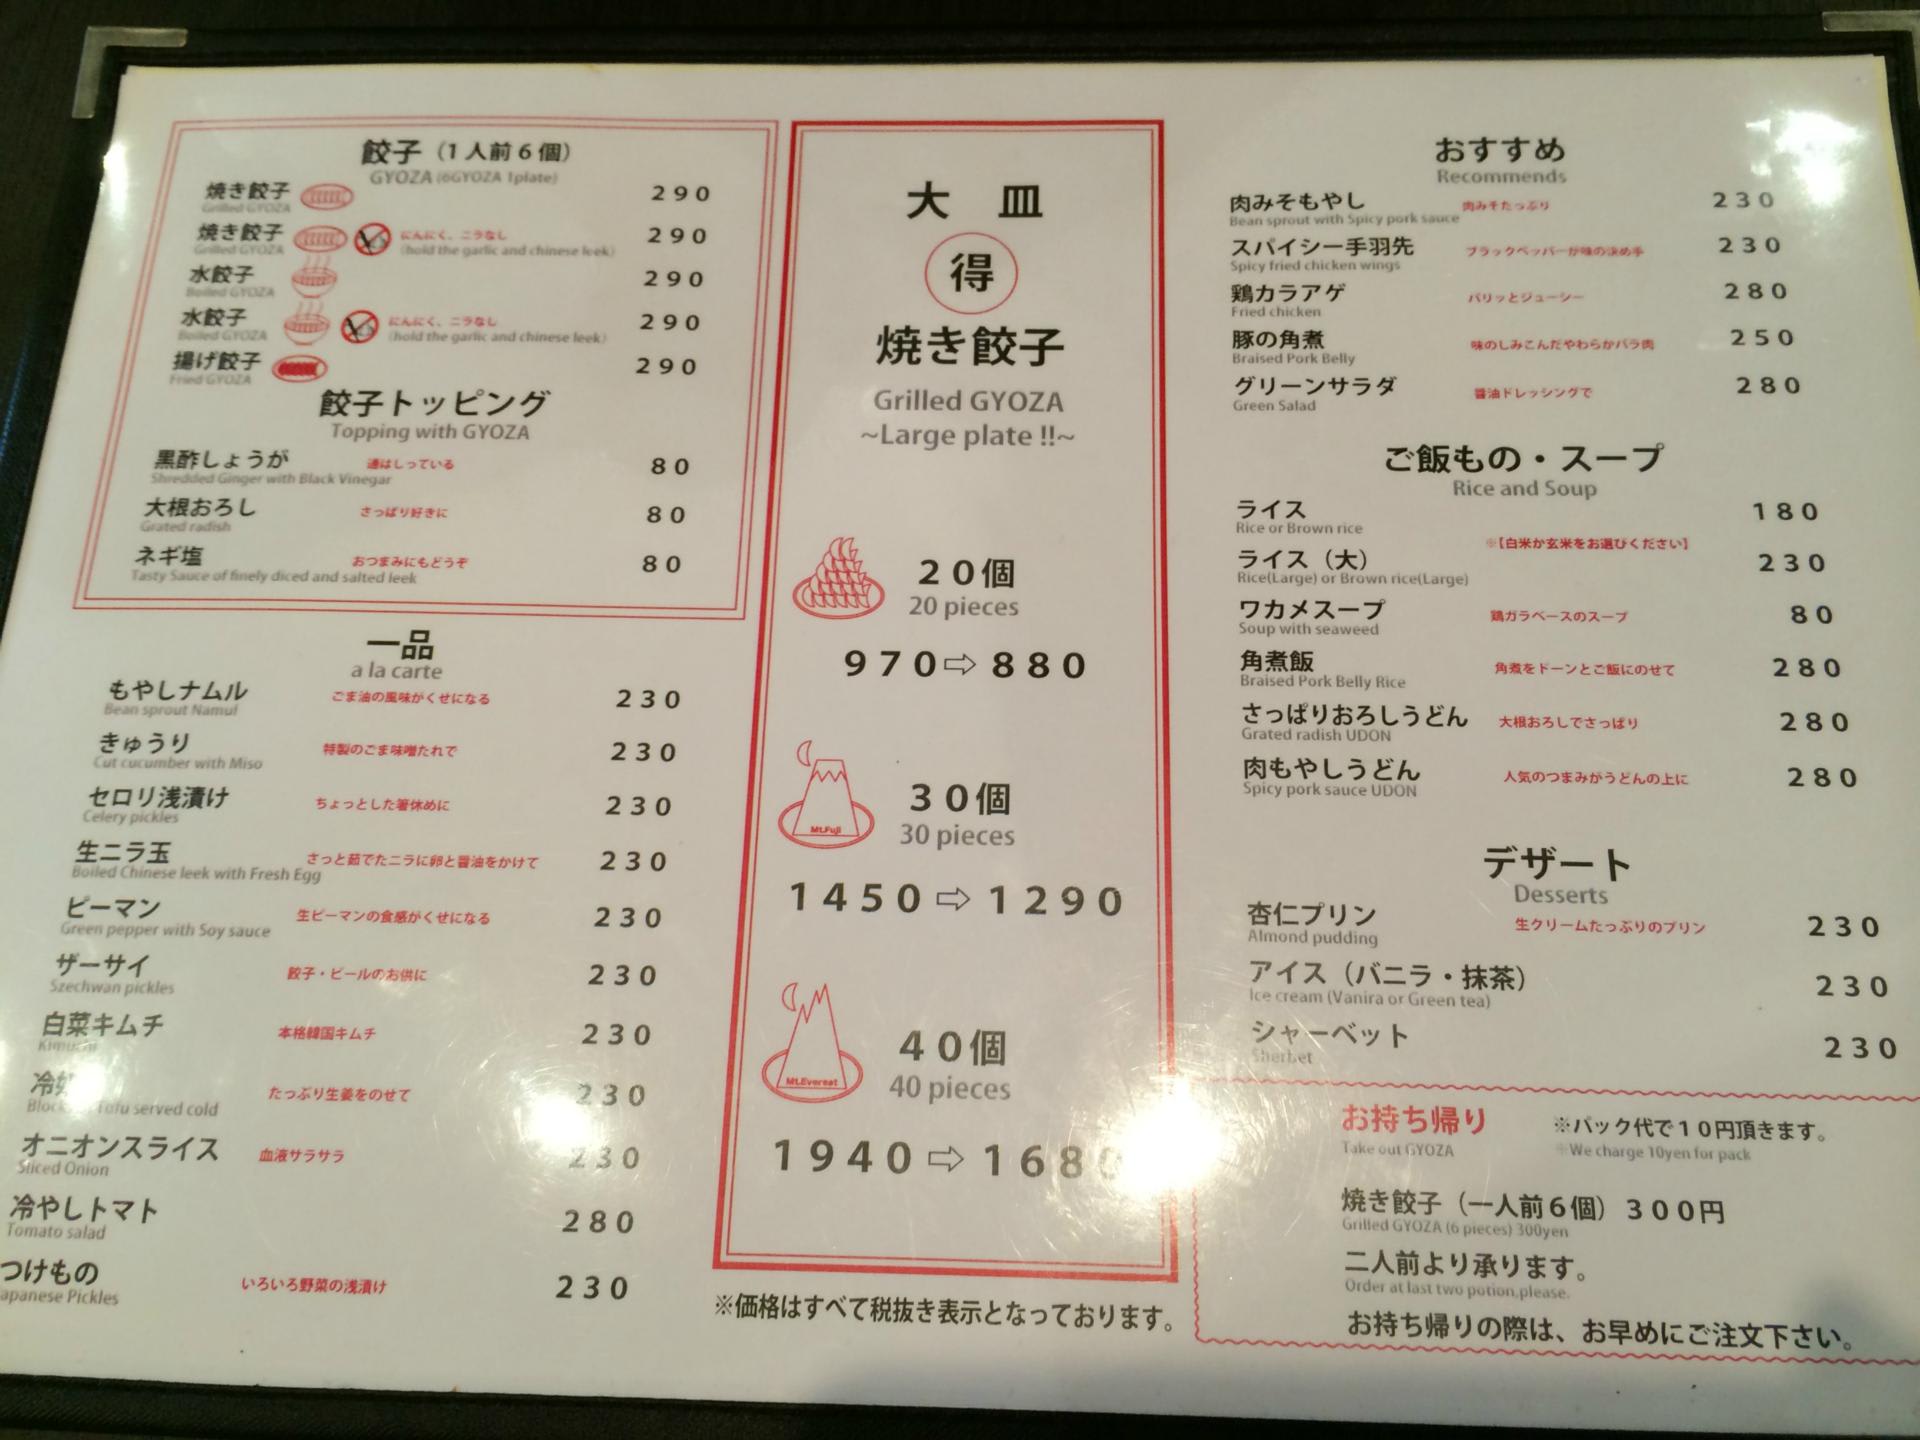 餃子（1人前6個）
GYOZA (6GYOZA 1plate)
焼き餃子 290
Grilled GYOZA
焼き餃子 にんにく、ニラなし 290
Grilled GYOZA (hold the garlic and chinese leek)
水餃子 290
Boiled GYOZA
水餃子 にんにく、ニラなし 290
Boiled GYOZA (hold the garlic and chinese leek)
揚げ餃子 290
Fried GYOZA
餃子トッピング
Topping with GYOZA
黒酢しょうが 通はしっている 80
Shredded Ginger with Black Vinegar
大根おろし さっぱり好きに 80
Grated radish
ネギ塩 おつまみにもどうぞ 80
Tasty Sauce of finely diced and salted leek
一品
a la carte
もやしナムル ごま油の風味がくせになる 230
Bean sprout Namul
きゅうり 特製のごま味噌たれで 230
Cut cucumber with Miso
セロリ浅漬け ちょっとした箸休めに 230
Celery pickles
生ニラ玉 さっと茹でたニラに卵と醤油をかけて 230
Boiled Chinese leek with Fresh Egg
ピーマン 生ピーマンの食感がくせになる 230
Green pepper with Soy sauce
ザーサイ 餃子・ビールのお供に 230
Szechwan pickles
白菜キムチ 本格韓国キムチ 230
Kimuchi
冷 たっぷり生姜をのせて 230
Tofu served cold
オニオンスライス 血液サラサラ 230
Sliced Onion
冷やしトマト 280
Tomato salad
つけもの いろいろ野菜の浅漬け 230
apanese Pickles
大皿
得
焼き餃子
Grilled GYOZA
~Large plate !!~
20個
20 pieces
970⇨880
Mt.Fuji
30個
30 pieces
1450⇨1290
Mt.Everest
40個
40 pieces
1940⇨1680
※価格はすべて税抜き表示となっております。
おすすめ
Recommends
肉みそもやし 肉みそたっぷり 230
Bean sprout with Spicy pork sauce
スパイシー手羽先 ブラックペッパーが味の決め手 230
Spicy fried chicken wings
鶏カラアゲ パリッとジューシー 280
Fried chicken
豚の角煮 味のしみこんだやわらかバラ肉 250
Braised Pork Belly
グリーンサラダ 醤油ドレッシングで 280
Green Salad
ご飯もの・スープ
Rice and Soup
ライス 180
Rice or Brown rice
※【白米か玄米をお選びください】
ライス（大） 230
Rice(Large) or Brown rice(Large)
ワカメスープ 鶏ガラベースのスープ 80
Soup with seaweed
角煮飯 角煮をドーンとご飯にのせて 280
Braised Pork Belly Rice
さっぱりおろしうどん 大根おろしでさっぱり 280
Grated radish UDON
肉もやしうどん 人気のつまみがうどんの上に 280
Spicy pork sauce UDON
デザート
Desserts
杏仁プリン 生クリームたっぷりのプリン 230
Almond pudding
アイス（バニラ・抹茶） 230
Ice cream (Vanira or Green tea)
シャーベット 230
Sherbet
お持ち帰り ※パック代で10円頂きます。
Take out GYOZA ※We charge 10yen for pack
焼き餃子（一人前6個）300円
Grilled GYOZA (6 pieces) 300yen
二人前より承ります。
Order at last two potion,please.
お持ち帰りの際は、お早めにご注文下さい。